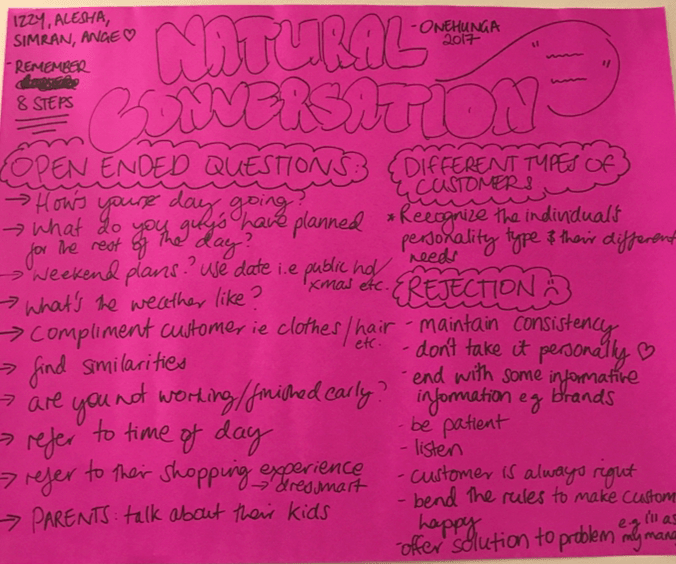 IZZY, ALESHA,
SIMRAN, ANGE ♡
- REMEMBER
8 STEPS
NATURAL
CONVERSATION
- ONEHUNGA
2017
OPEN ENDED QUESTIONS:
→ How's your day going?
→ what do you guy's have planned
for the rest of the day?
→ weekend plans? use date i.e public hol/
xmas etc.
→ what's the weather like?
→ compliment customer ie clothes/hair
etc.
→ find similarities
→ are you not working/finished early?
→ refer to time of day
→ refer to their shopping experience
→ dressmart
→ PARENTS: talk about their kids
DIFFERENT TYPES OF
CUSTOMERS
* Recognize the individual's
personality type & their different
needs
REJECTION ☹
- maintain consistency
- don't take it personally ♡
- end with some informative
information eg brands
- be patient
- listen
- customer is always right
- bend the rules to make custom
happy
- offer solution to problem e.g i'll as
my mana